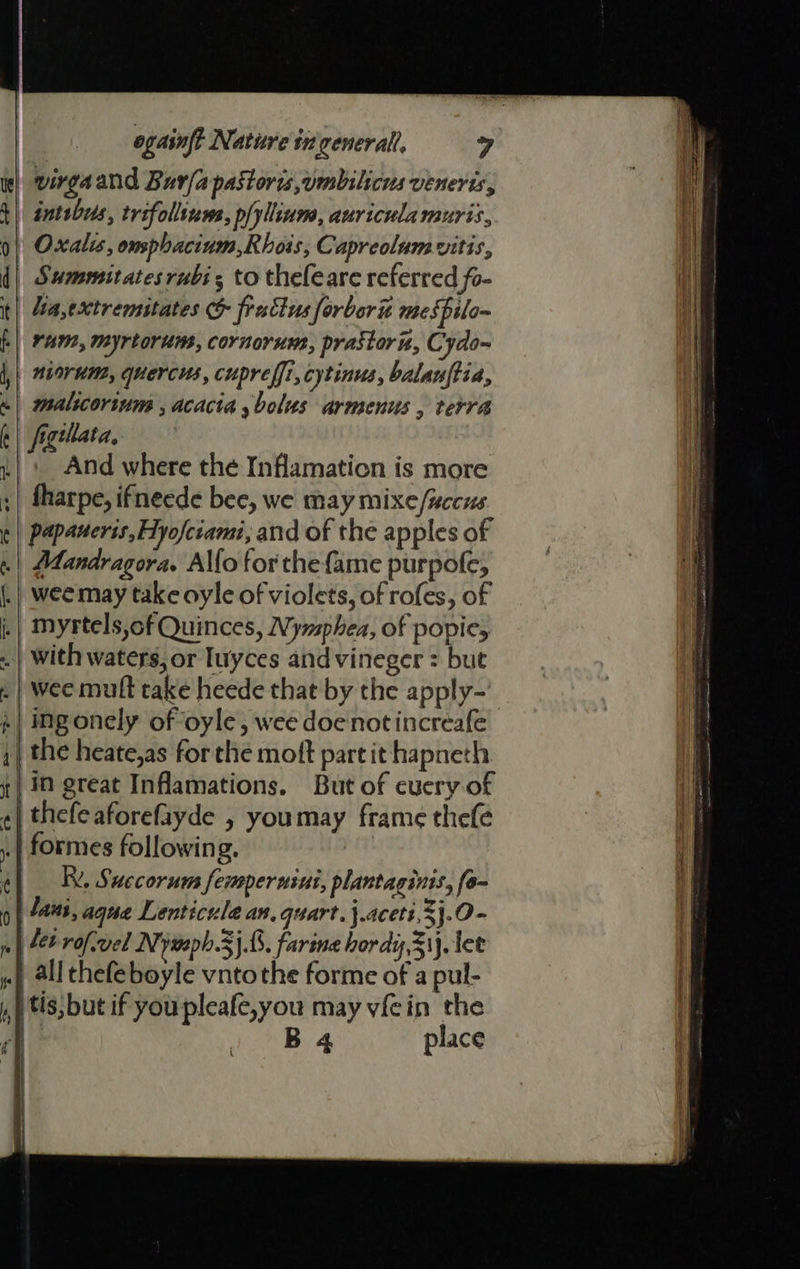 egainſt Nature in generall, 7
virga and Burſa paſtoris, vmbilicus veneris,
intibus, trifolium, pſyllium, auricula muris,
Oxalis, omphacium, Rhois, Capreolum vitis,
Summitates rubi; to theſe are referred fo-
lia, extremitates & fructus ſorborū meſpilo-
rum, myrtorum, cornorum, praſtorū, Cydo-
niorum, quercus, cupreſſi, cytinus, balauſtia,
malicorium, acacia, bolus armenus, terra
ſigillata.
And where the Inflamation is more
ſharpe, if neede bee, we may mixe ſuccus
papaueris, Hyoſciami, and of the apples of
Mandragora. Alſo for the ſame purpoſe,
wee may take oyle of violets, of roſes, of
myrtels, of Quinces, Nymphea, of popie,
with waters, or Iuyces and vineger: but
wee muſt take heede that by the apply-
ing onely of oyle, wee doe not increaſe
the heate, as for the moſt part it hapneth
in great Inflamations. But of euery of
theſe aforeſayde, you may frame theſe
formes following.
℞. Succorum ſemperuiui, plantaginis, ſo-
lani, aquæ Lenticulæ an. quart. j. aceti, ℥j. O-
lei roſ. vel Nymph. ℥j.ß. farinæ hordij, ℥ij. let
all theſe boyle vnto the forme of a pul-
tis, but if you pleaſe, you may vſe in the
B 4 place